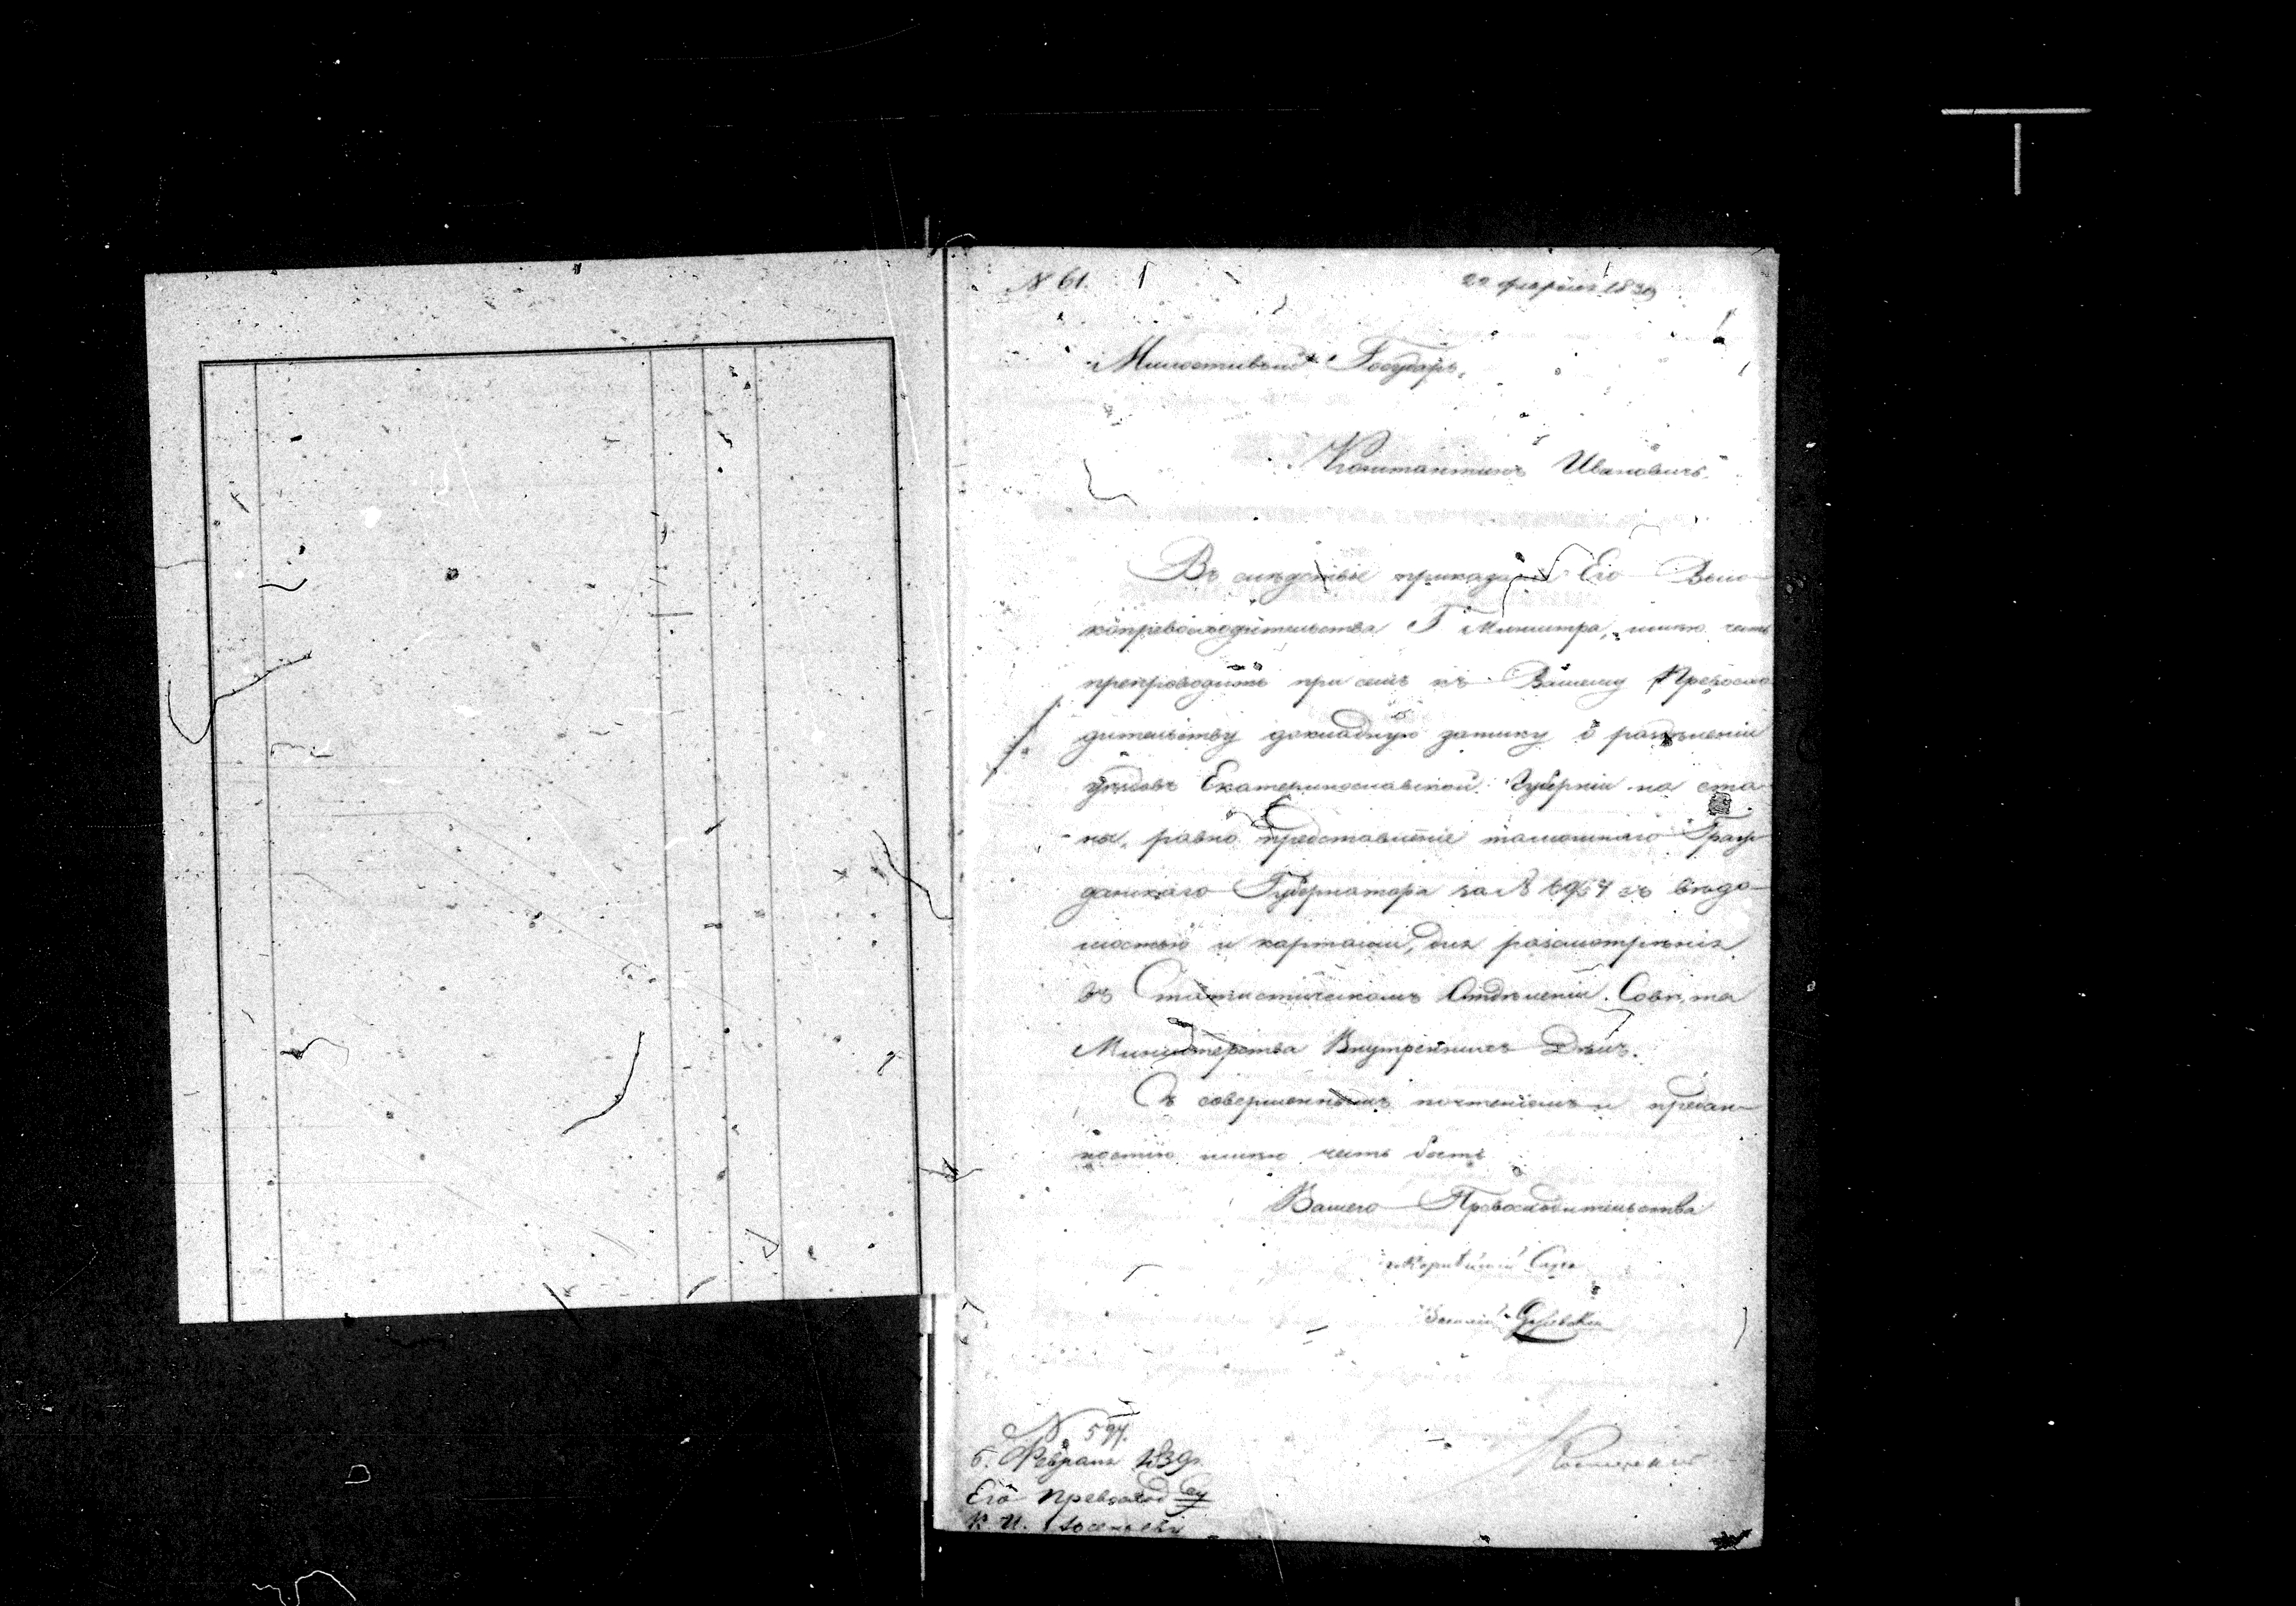 № 61.
22 февраля 1839
Милостивый Государь,
Константинъ Ивановичъ.
Въ слѣдствіе приказанія Его Высо-
копревосходительства Г Министра, имѣю честь
препроводить при семъ къ Вашему Превосхо
дительству докладную записку о раздѣленіи
уѣздовъ Екатеринославской Губерніи на ста
ны, равно представленіе тамошняго Граж
данскаго Губернатора за № съ вѣдо-
мостью и картами, для разсмотрѣнія
въ Статистическомъ Отдѣленіи Совѣта
Министерства Внутреннихъ Дѣлъ.
Съ совершеннымъ почтеніемъ и предан-
ностію имѣю честь быть
Вашего Превосходительства
покорнѣйшій Слуга
№ 597.
Февраля 1839.
Его Превосход ву
К. И. Арсеньеву